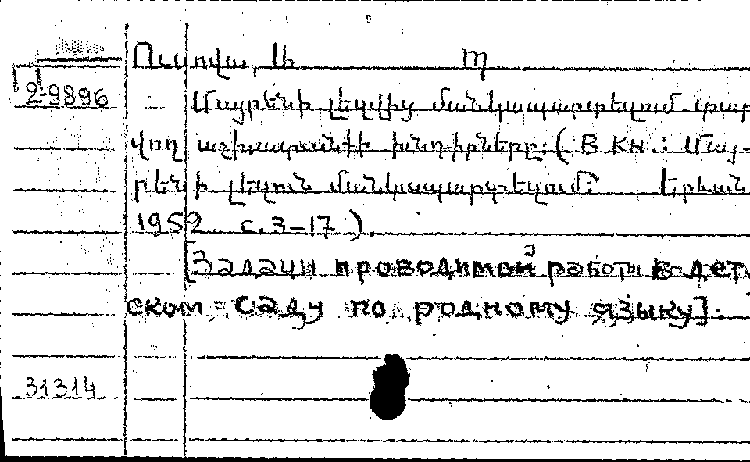 2-9896
Մայրենի լեզվից մանկապարտեզում տար
վող աշխատանքի խնդիրները. ( В кн.: Մայ-
րենի լեզուն մանկապարտեզում: Երևան
1952 с. 3-17 ).
[Задачи проводимой работы в дет
ском саду по родному языку].
31314